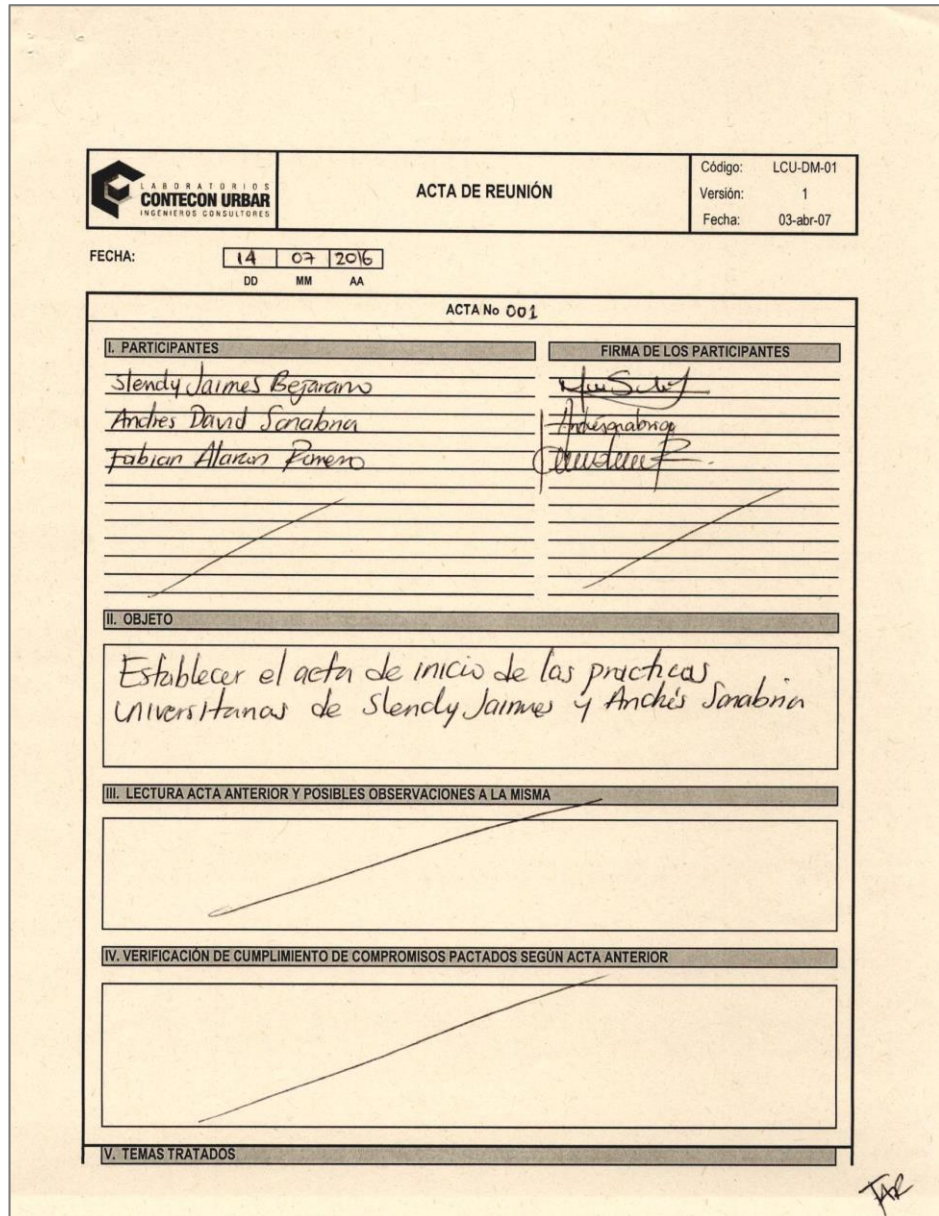 LABORATORIOS
CONTECON URBAR
INGENIEROS CONSULTORES
ACTA DE REUNIÓN
Código: LCU-DM-01
Versión: 1
Fecha: 03-abr-07
FECHA: 14 07 2016
DD MM AA
ACTA No 001
I. PARTICIPANTES
FIRMA DE LOS PARTICIPANTES
Slendy Jaimes Bejarano
Andres David Sanabria
Andresanabria
Fabian Alarcon Romero
II. OBJETO
Establecer el acta de inicio de las practicas
universitarias de Slendy Jaimes y Andrés Sanabria
III. LECTURA ACTA ANTERIOR Y POSIBLES OBSERVACIONES A LA MISMA
IV. VERIFICACIÓN DE CUMPLIMIENTO DE COMPROMISOS PACTADOS SEGÚN ACTA ANTERIOR
V. TEMAS TRATADOS
FAR